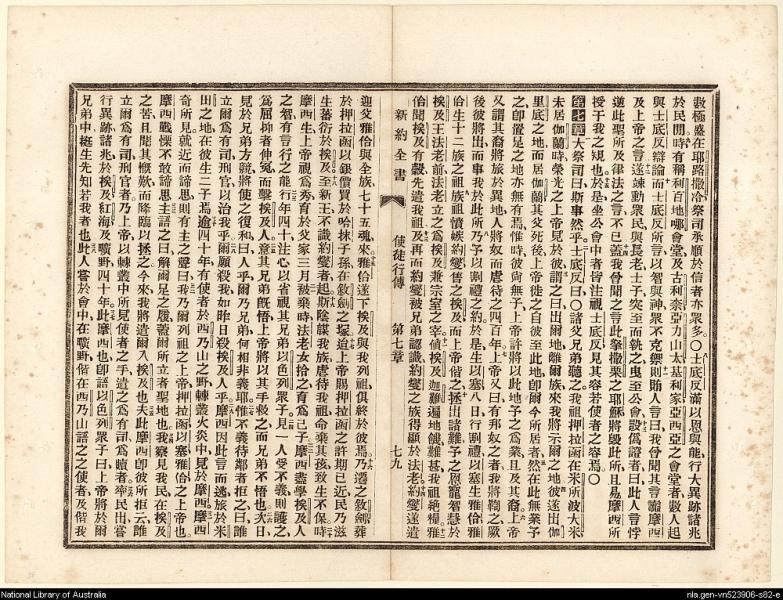 數極盛在耶路撒冷祭司承順於信者亦衆多○士底反滿以恩與能行大異跡諸兆
於民間時有稱利百地哪會堂及古利奈亞力山太基利家亞西亞之會堂者數人起
與士底反辯論而士底反所言以智與神衆不克禦則賄人言曰我曾聞其言讟摩西
及上帝之言遂竦動衆民與長老士子突至而執之曳至公會設僞證者曰此人言悖
逆此聖所及律法之言不已蓋我曾聞之言此拏撒栗之耶穌將毀此所且易摩西所
授于我之規也於是坐公會中者皆注視士底反見其容若使者之容焉○
第七章大祭司曰斯事然乎士底反曰○諸父兄弟聽之我祖押拉函在米所波大米
未居伽蘭時榮光之上帝見於彼謂之曰出爾地離爾族來我將示爾之地彼遂出伽
里底之地而居伽蘭其父死後上帝徙之自彼至此地卽爾今所居者然在此無業予
之卽置足之地亦無有焉惟時彼尚無子上帝許將以此地予之爲業且及其裔上帝
又謂其裔將旅於異地人將奴而虐待之四百年上帝又曰有邦奴之者我將鞫之厥
後彼將出而事我於此所乃予以割禮之約於是生以塞八日行割禮以塞生雅佮雅
佮生十二族之祖族祖憤嫉約燮售之於挨及而上帝偕之拯出諸難予之恩寵智慧於
挨及王法老前法老立之爲挨及兼宗室之宰値挨及迦難遍地饑難甚我祖絕糧雅
佮聞挨及有穀先遣我祖及再而約燮被兄弟認識約燮之族得顯於法老約燮遂遣
新約全書 使徒行傳 第七章 七九
迎父雅佮與全族七十五魂來雅佮遂下挨及與我列祖俱終於彼焉乃遷之敘劍葬
於押拉函以銀價買於哈抹子孫在敘劍之塚迨上帝賜押拉函之許期已近民乃滋
生蕃衍於挨及至新王不識約燮者起斯陰謀我族虐待我祖命棄其孩致生不保時
摩西生上帝視爲秀育於父家三月被棄時法老女拾之育爲己子摩西盡學挨及人
之智有言行之能行年四十法心以省視其兄弟以色列衆子見一人受不義則護之
爲屈抑者伸寃而擊挨及人意其兄弟旣悟上帝將以其手救之而兄弟不悟也次日
見於兄弟方競將使之復和曰人乎爾乃兄弟何相非義耶惟不義待鄰者拒之曰誰
立爾爲有司刑官以治我乎爾願殺我如昨日殺挨及人乎摩西因此言而逃旅於米
田之地在彼生二子焉逾四十年有使者於西乃山之野棘叢火炎中見於摩西摩西
奇所見就近而諦思則有主之聲曰我乃爾列祖之上帝押拉函以塞雅佮之上帝也
摩西戰慄不敢諦思主語之曰解爾足之履蓋爾所立者聖地也我察見我民在挨及
之苦且聞其慨歎而降臨以拯之今來我將遣爾入挨及也夫此摩西卽彼所拒云誰
立爾爲有司刑官者乃上帝以棘叢中所見使者之手遣之爲有司爲贖者率民出嘗
行異跡諸兆於挨及紅海及曠野四十年此摩西也卽語以色列衆子曰上帝將於爾
兄弟中挺生先知若我者也此人嘗於會中在曠野偕在西乃山語之之使者及偕我
National Library of Australia
nla.gen-vn523906-s82-e